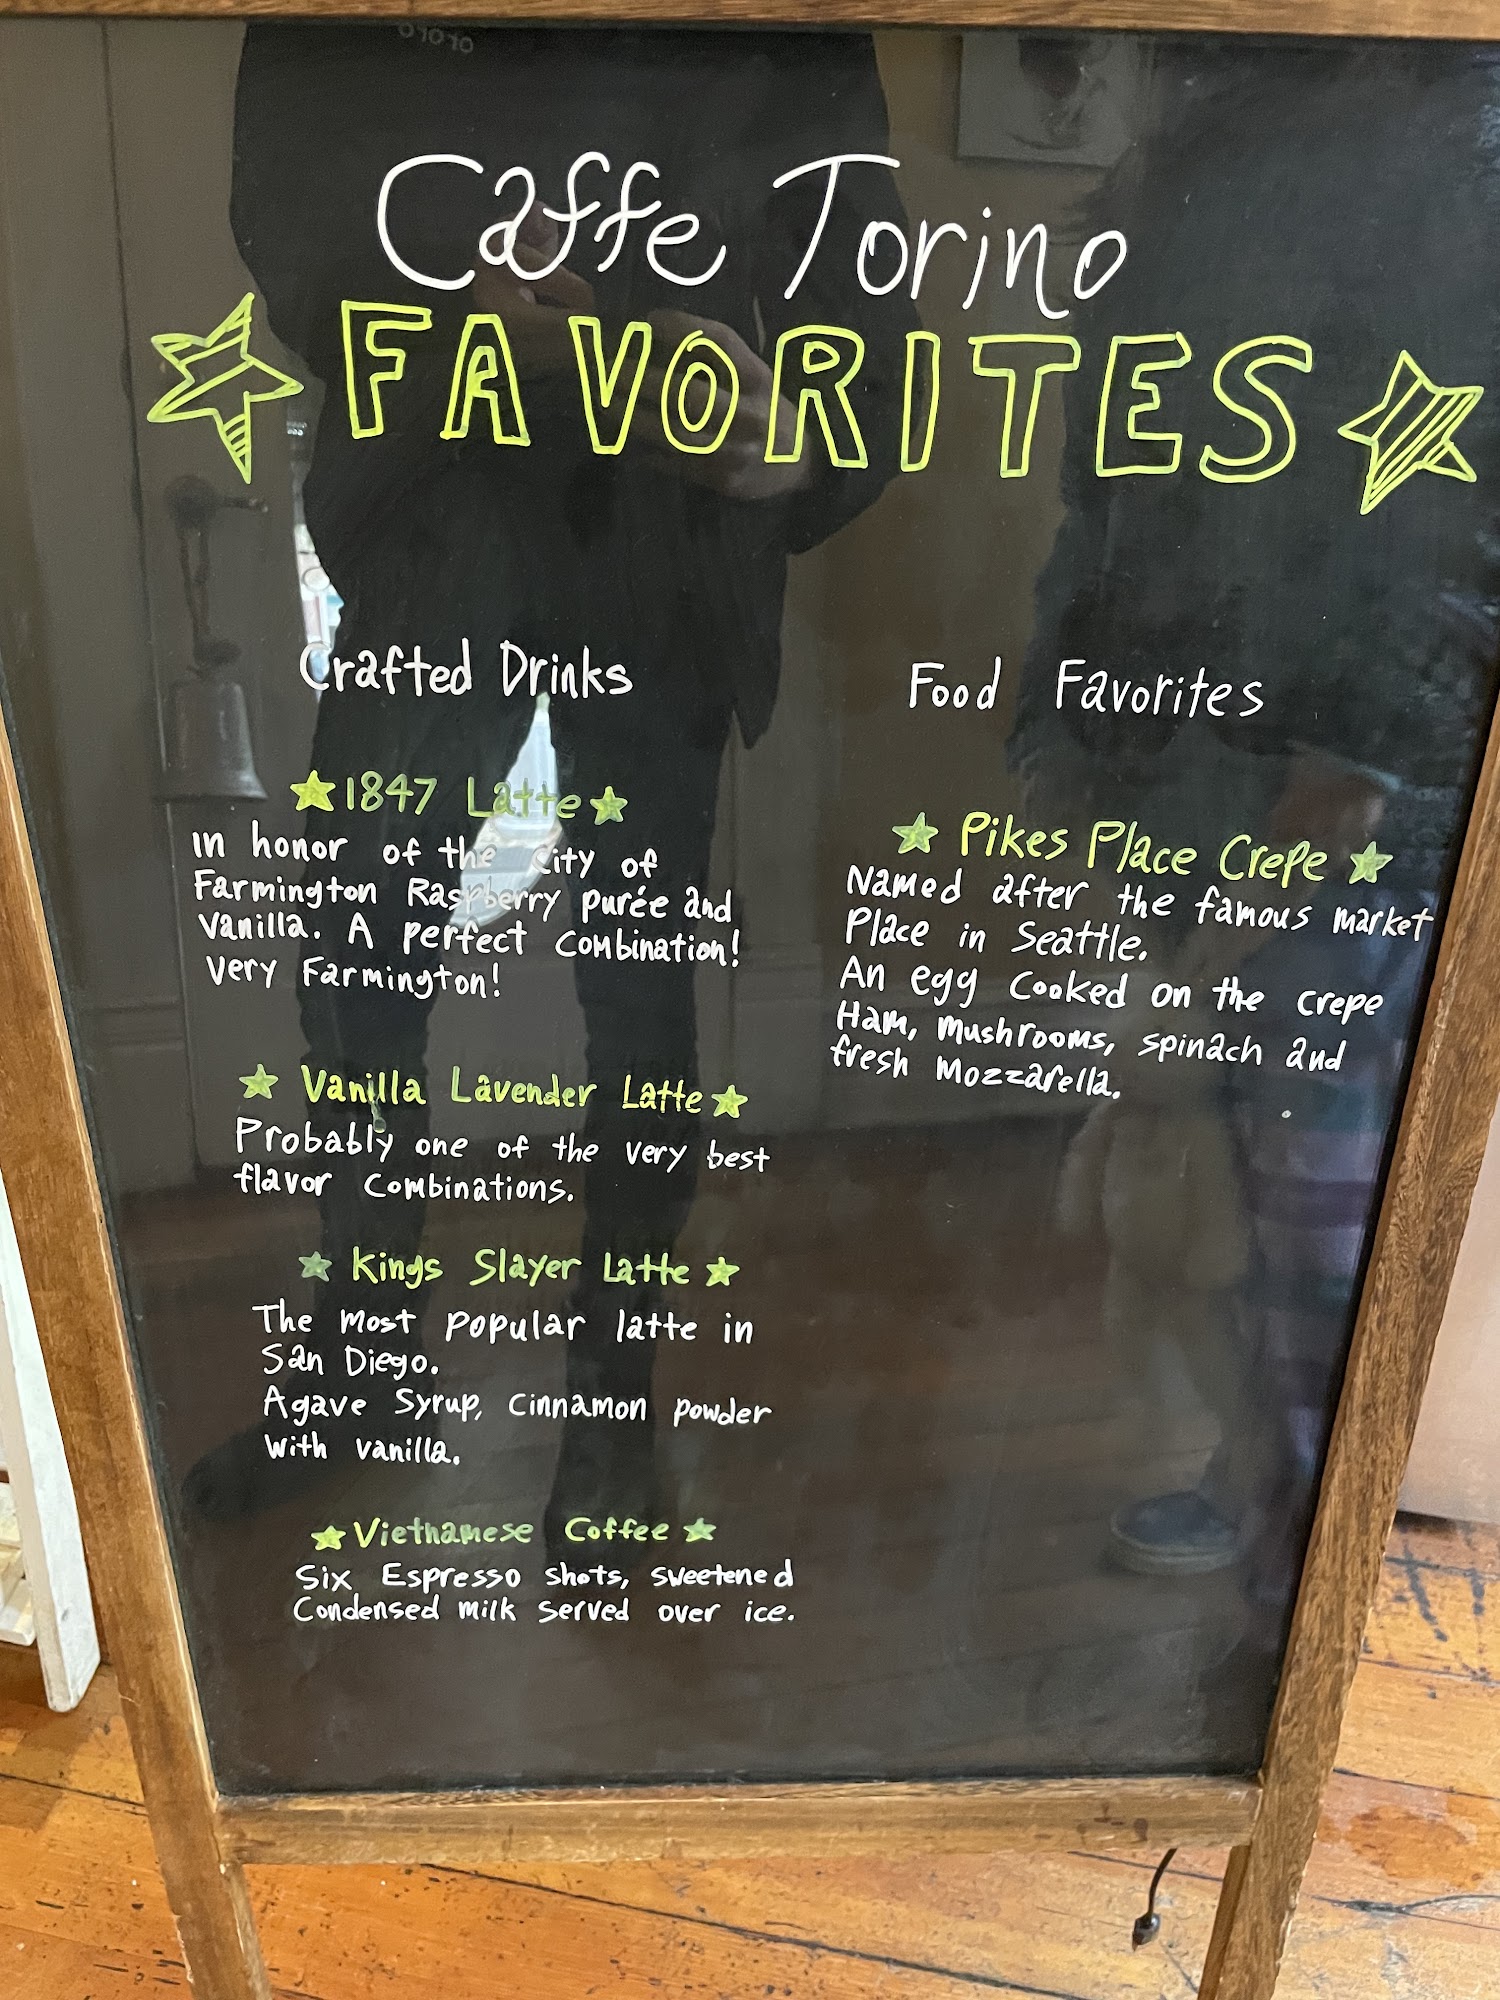 Caffe Torino
FAVORITES
Crafted Drinks
1847 Latte
In honor of the City of
Farmington Raspberry purée and
Vanilla. A perfect combination!
Very Farmington!
Vanilla Lavender Latte
Probably one of the very best
flavor combinations.
Kings Slayer Latte
The most popular latte in
San Diego.
Agave Syrup, Cinnamon powder
with vanilla.
Vietnamese Coffee
Six Espresso shots, sweetened
Condensed milk served over ice.
Food Favorites
Pikes Place Crepe
Named after the famous market
Place in Seattle.
An egg cooked on the crepe
Ham, mushrooms, spinach and
fresh Mozzarella.